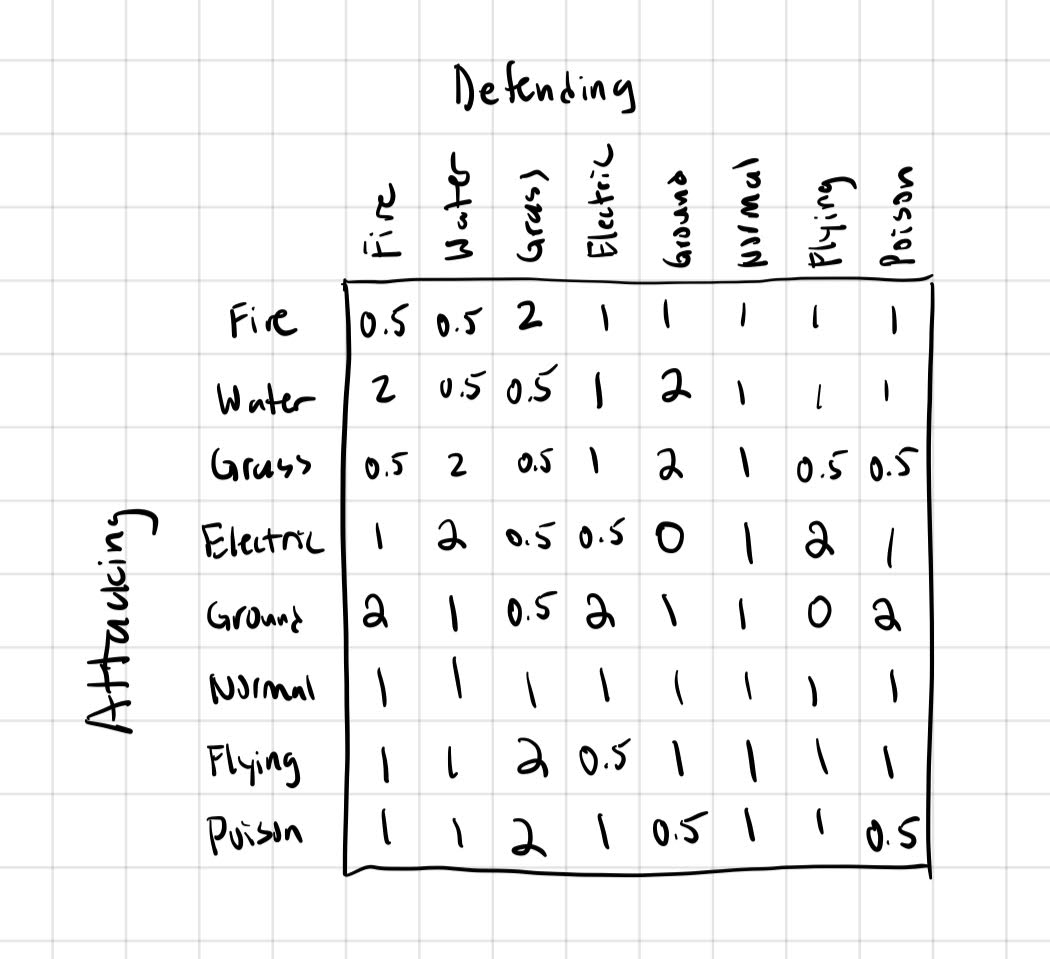 Defending
Fire Water Grass Electric Ground Normal Flying Poison
Attacking
Fire 0.5 0.5 2 1 1 1 1 1
Water 2 0.5 0.5 1 2 1 1 1
Grass 0.5 2 0.5 1 2 1 0.5 0.5
Electric 1 2 0.5 0.5 0 1 2 1
Ground 2 1 0.5 2 1 1 0 2
Normal 1 1 1 1 1 1 1 1
Flying 1 1 2 0.5 1 1 1 1
Poison 1 1 2 1 0.5 1 1 0.5